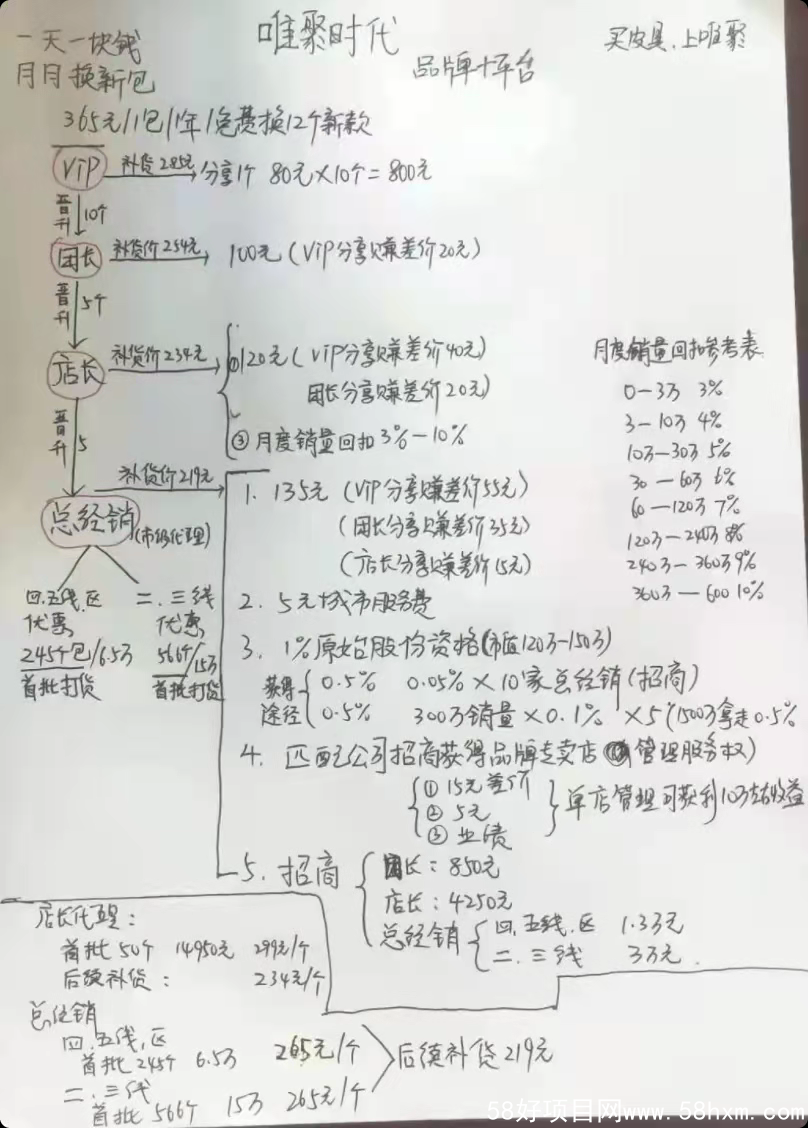 一天一块钱
月月换新包
唯聚时代
品牌+平台
买皮具.上唯聚
365元/1包/1年/免费换12个新款
VIP 补货285元 分享1个 80元×10个=800元
晋升 10个
团长 补货价254元 100元(VIP分享赚差价20元)
晋升 5个
店长 补货价234元 ①120元(VIP分享赚差价40元)
团长分享赚差价20元)
③月度销量回扣3%-10%
月度销量回扣参考表
0-3万 3%
3-10万 4%
10万-30万 5%
30-60万 6%
60-120万 7%
120万-240万 8%
240万-360万 9%
360万-600 10%
晋升 5
总经销(市级代理) 补货价219元
四.五线.区
优惠
245个包/6.5万
首批打货
二.三线
优惠
566个/15万
首批打货
1. 135元(VIP分享赚差价55元)
(团长分享赚差价35元)
(店长分享赚差价15元)
2. 5元城市服务费
3. 1%原始股份资格(市值120万-150万)
获得途径
0.5% 0.05%×10家总经销(招商)
0.5% 300万销量×0.1%×5(1500万拿走0.5%
4. 匹配公司招商获得品牌专卖店管理服务权)
①15元差价
②5元
③业绩
单店管理可获利10万左右收益
5. 招商
团长:850元
店长:4250元
总经销
四.五线.区 1.3万元
二.三线 3万元.
店长代理:
首批50个 14950元 299元/个
后续补货: 234元/个
总经销
四.五线.区
首批245个 6.5万 265元/个
二.三线
首批566个 15万 265元/个
后续补货219元
58好项目网www.58hxm.com